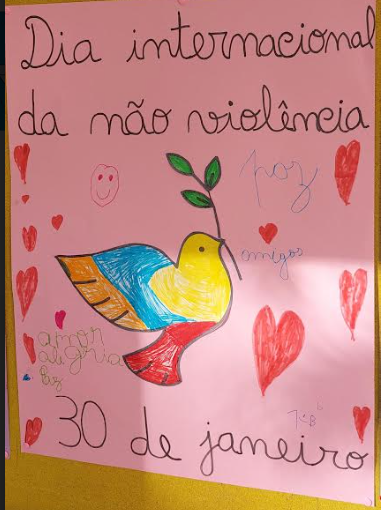 Dia internacional
da não violência
paz
amigos
amor
alegria
paz
30 de janeiro